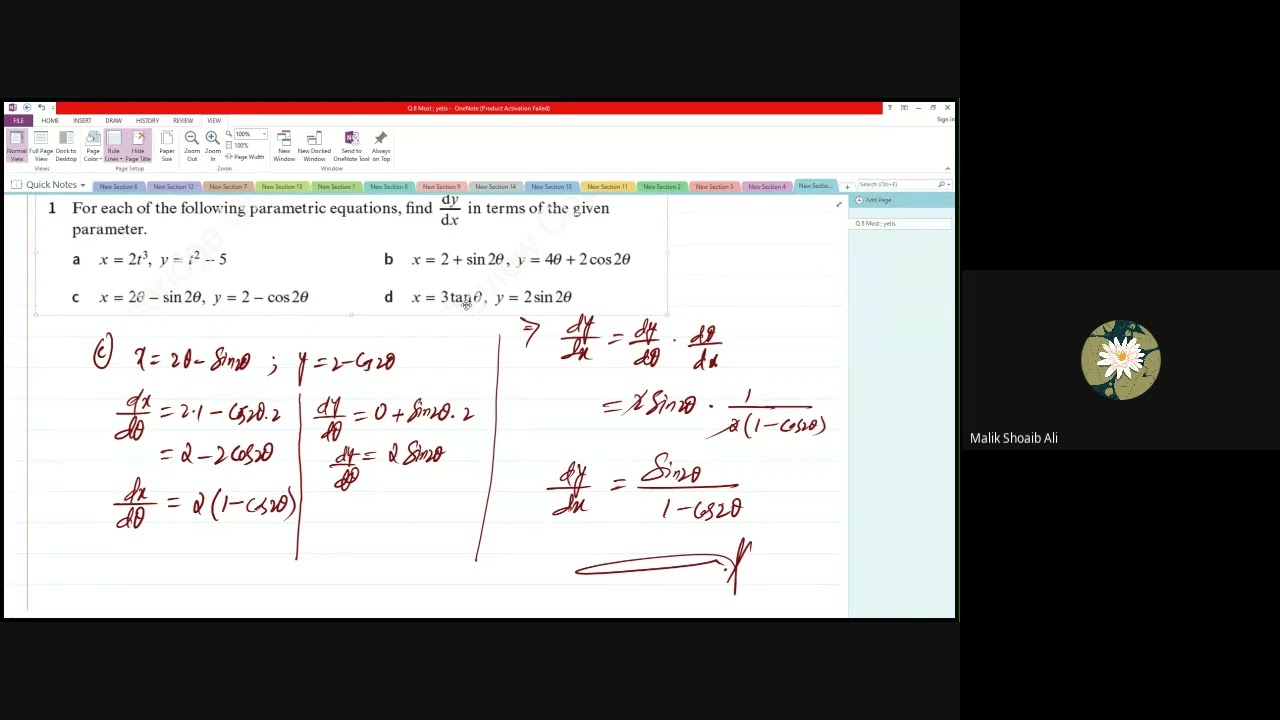 Q.8 Most ; yetis - OneNote (Product Activation Failed)
FILE HOME INSERT DRAW HISTORY REVIEW VIEW
Sign in
Normal View Full Page View Dock to Desktop Page Color Rule Lines Hide Page Title Paper Size Zoom Out Zoom In 100% 100% Page Width New Window New Docked Window Send to OneNote Tool Always on Top
Views Page Setup Zoom Window
Quick Notes New Section 6 New Section 12 New Section 7 New Section 13 New Section 1 New Section 8 New Section 9 New Section 14 New Section 10 New Section 11 New Section 2 New Section 3 New Section 4 New Sectio... Search (Ctrl+E)
Add Page
Q.8 Most ; yetis
1 For each of the following parametric equations, find dy/dx in terms of the given
parameter.
a x = 2t³, y = t² − 5
b x = 2 + sin 2θ, y = 4θ + 2 cos 2θ
c x = 2θ − sin 2θ, y = 2 − cos 2θ
d x = 3 tan θ, y = 2 sin 2θ
(c) x = 2θ − Sin2θ ; y = 2 − Cos2θ
dx/dθ = 2·1 − Cos2θ·2
= 2 − 2Cos2θ
dx/dθ = 2(1 − Cos2θ)
dy/dθ = 0 + Sin2θ·2
dy/dθ = 2 Sin2θ
⇒ dy/dx = dy/dθ · dθ/dx
= 2 Sin2θ · 1/2(1 − Cos2θ)
dy/dx = Sin2θ/1 − Cos2θ
Malik Shoaib Ali